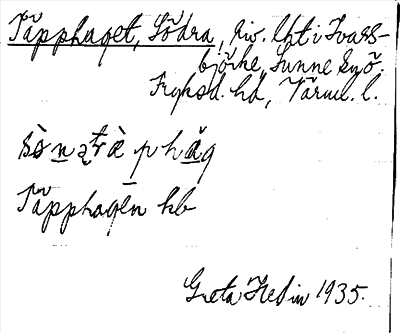 Täpphaget, Södra, riv. lht i Ivars-
björke, Sunne sn,
Fryksd. hd, Värml. l.
sön a tr à p h ă g
Täpphagen kb
Greta Hedin 1935.